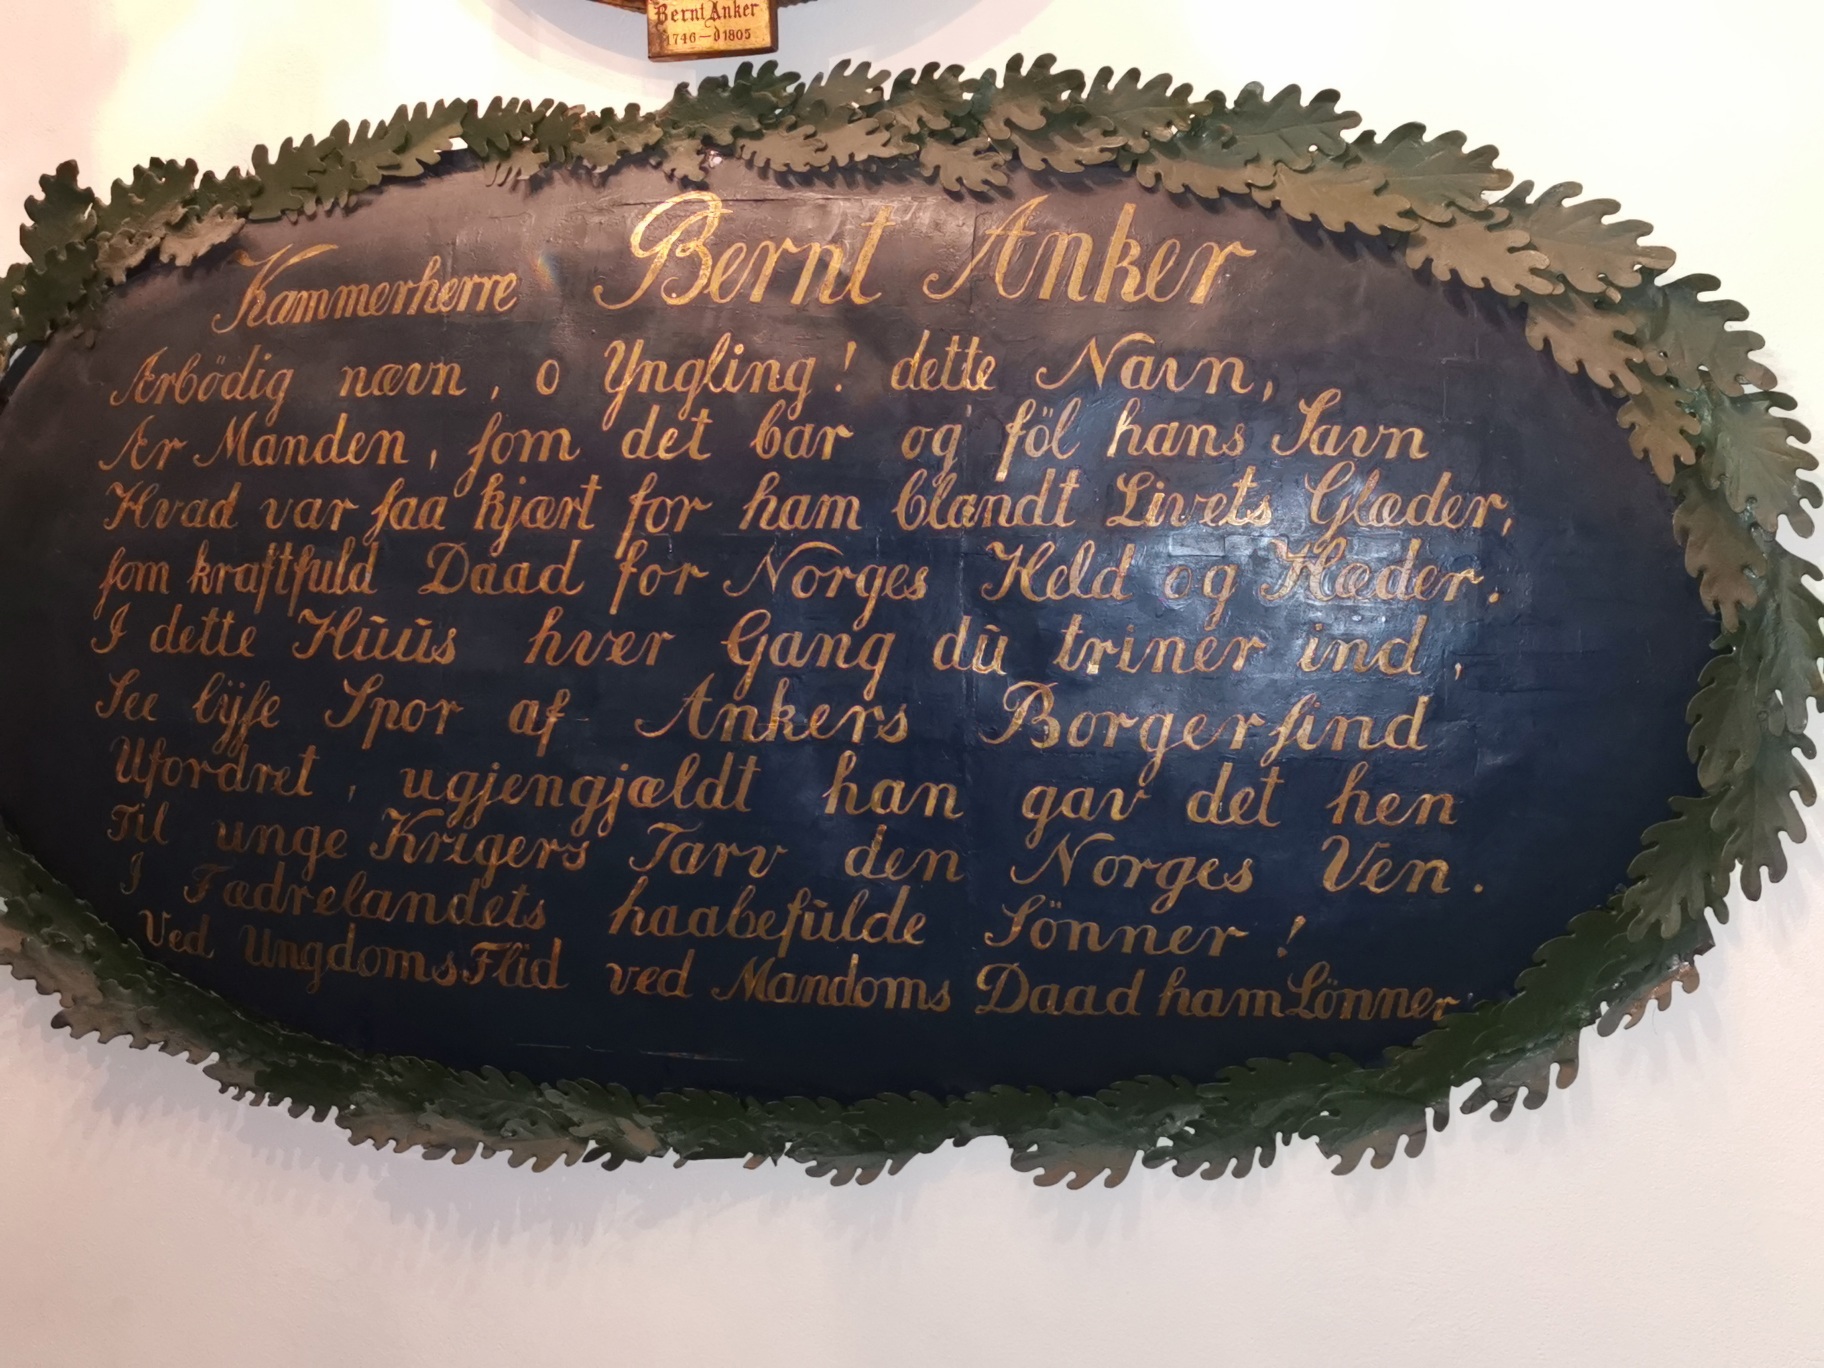 Bernt Anker
1746–d1805
Kammerherre Bernt Anker
Ærbödig nævn, o Yngling! dette Navn,
Ær Manden, som det bar og föl hans Savn
Hvad var saa kjært for ham blandt Livets Glæder,
som kraftfuld Daad for Norges Held og Hæder.
I dette Hūūs hver Gang dū triner ind,
See lÿse Spor af Ankers Borgersind
Ufordret, ugjengjældt han gav det hen
Til unge Krigers Tarv den Norges Ven.
I Fædrelandets haabefūlde Sönner!
Ved Ungdoms Flid ved Mandoms Daad ham Lönner